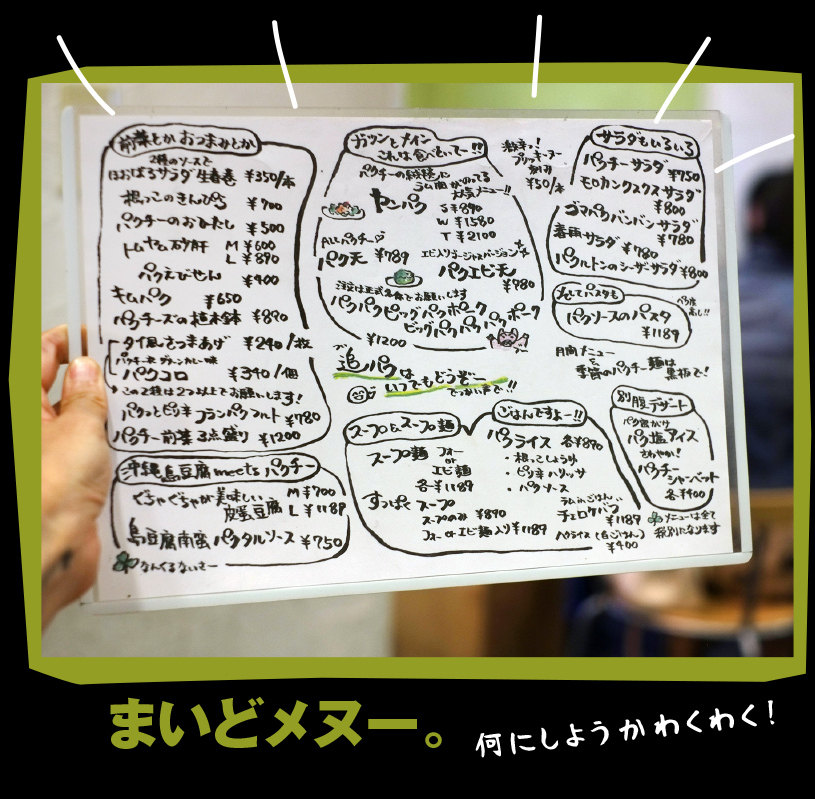 前菜とか おつまみとか
2種のソースで
ほおばるサラダ生春巻 ¥350/本
根っこのきんぴら ¥700
パクチーのおひたし ¥500
トムヤム砂肝 M ¥600
L ¥890
パクえびせん ¥400
キムパク ¥650
パクチーズの植木鉢 ¥890
タイ風さつまあげ ¥240/枚
パクチー天 グリーンカレー味
パクコロ ¥340/個
この2種は2つ以上でお願いします!
パクッとピリ辛フランパクフルト ¥780
パクチー前菜3点盛り ¥1200
沖縄島豆腐meetsパクチー
ぐちゃぐちゃが美味しい M ¥700
皮蛋豆腐 L ¥1189
島豆腐南蛮パクタルソース ¥750
なんくるないさー
おツンとメイン
これは食べといてー!!
パクチーの
ラム肉がのってる
人気メニュー!!
ヤンパク S ¥890
W ¥1580
T ¥2100
ALLパクチー
パク天 ¥789
エビ入りゴージャスバージョン
パクエビ天
¥980
注文は正式名称でお願いします
パクパクピッグパクポーク
ビッグパクパクパクポーク
¥1200
追パクは
いつでもどうぞー
でっかい声で!!
激辛っ!
プリッキーヌー
刻み
¥50/本
サラダもいろいろ
パクチーサラダ ¥750
モロカンクスクスサラダ
¥800
ゴマパクバンバンサラダ
¥780
春雨サラダ ¥780
パクルトンのシーザサラダ ¥800
そしてパスタも
パクソースのパスタ
¥1189
パク度
高し!!
月間メニュー
と
季節のパクチー麺は
黒板で!
スープ&スープ麺
スープ麺 フォー
or
エビ麺
各¥1189
すっぱくスープ
スープのみ ¥890
フォー or エビ麺入り ¥1189
ごはんですよー!!
パクライス 各¥890
・根っこしょうゆ
・ピリ辛ハリッサ
・パクソース
ラムinごはん
チェロケバブ
¥1189
パクライス(白ごはん)
¥400
別腹デザート
パク塩アイス
さわやか!
パクチー
シャーベット
各¥400
メニューは全て
税別になります
まいどメヌー。
何にしようかわくわく!